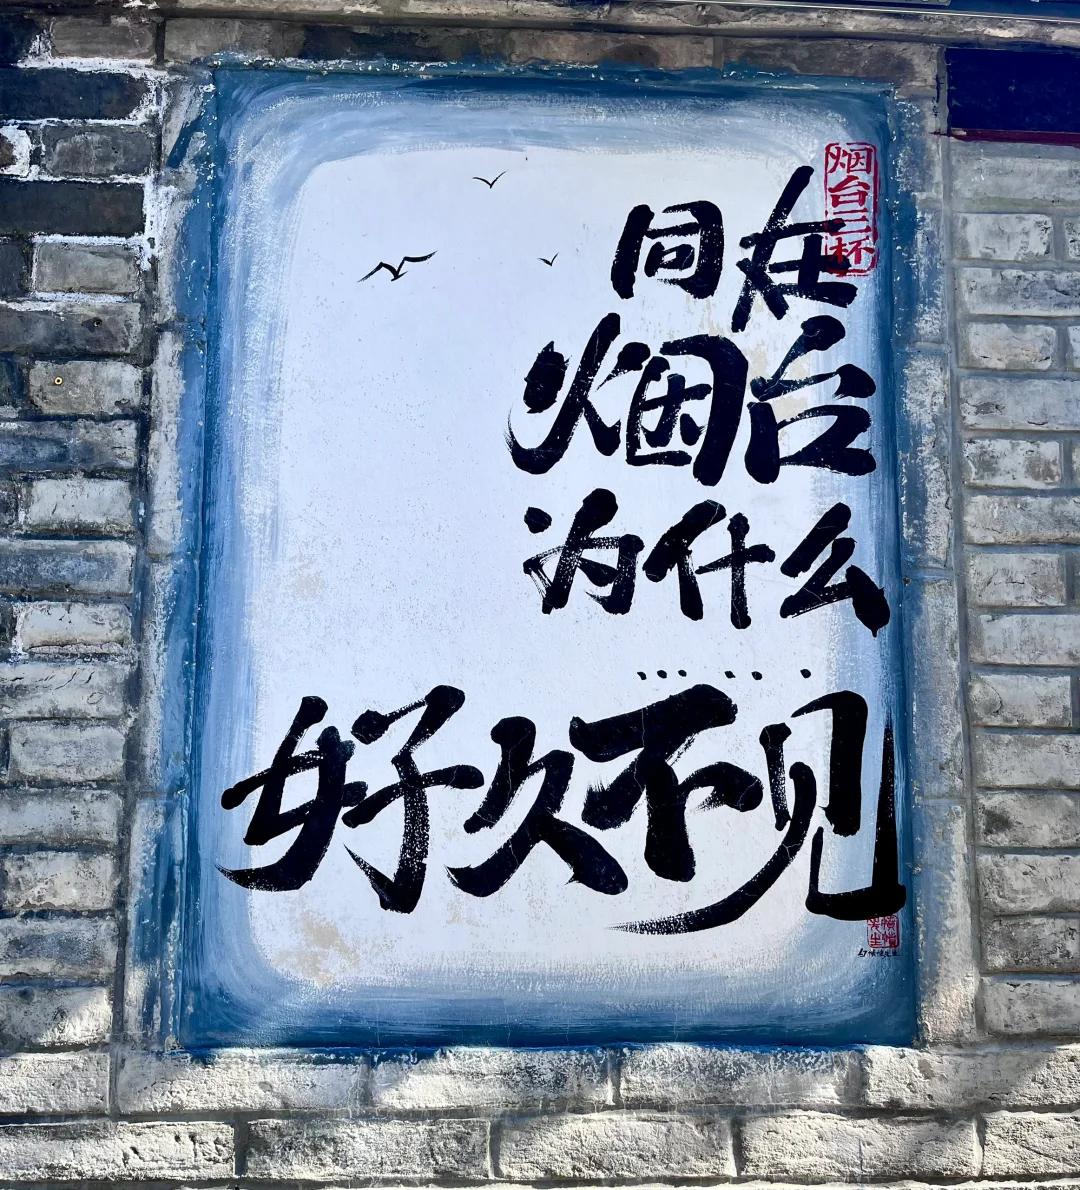 同在
烟台
为什么
……
好久不见
烟台三杯